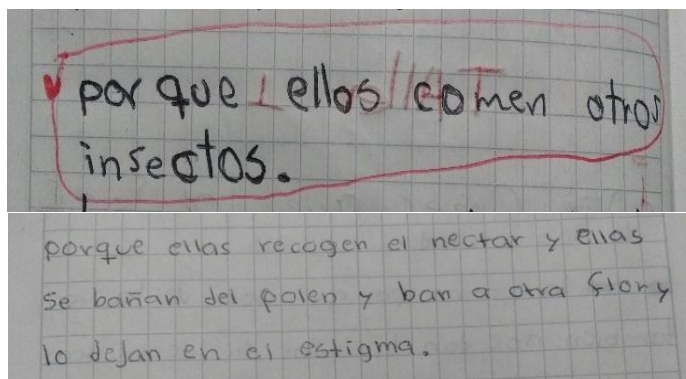 por que ellos comen otros
insectos.
porque ellas recogen el nectar y ellas
se bañan del polen y ban a otra flor y
lo dejan en el estigma.